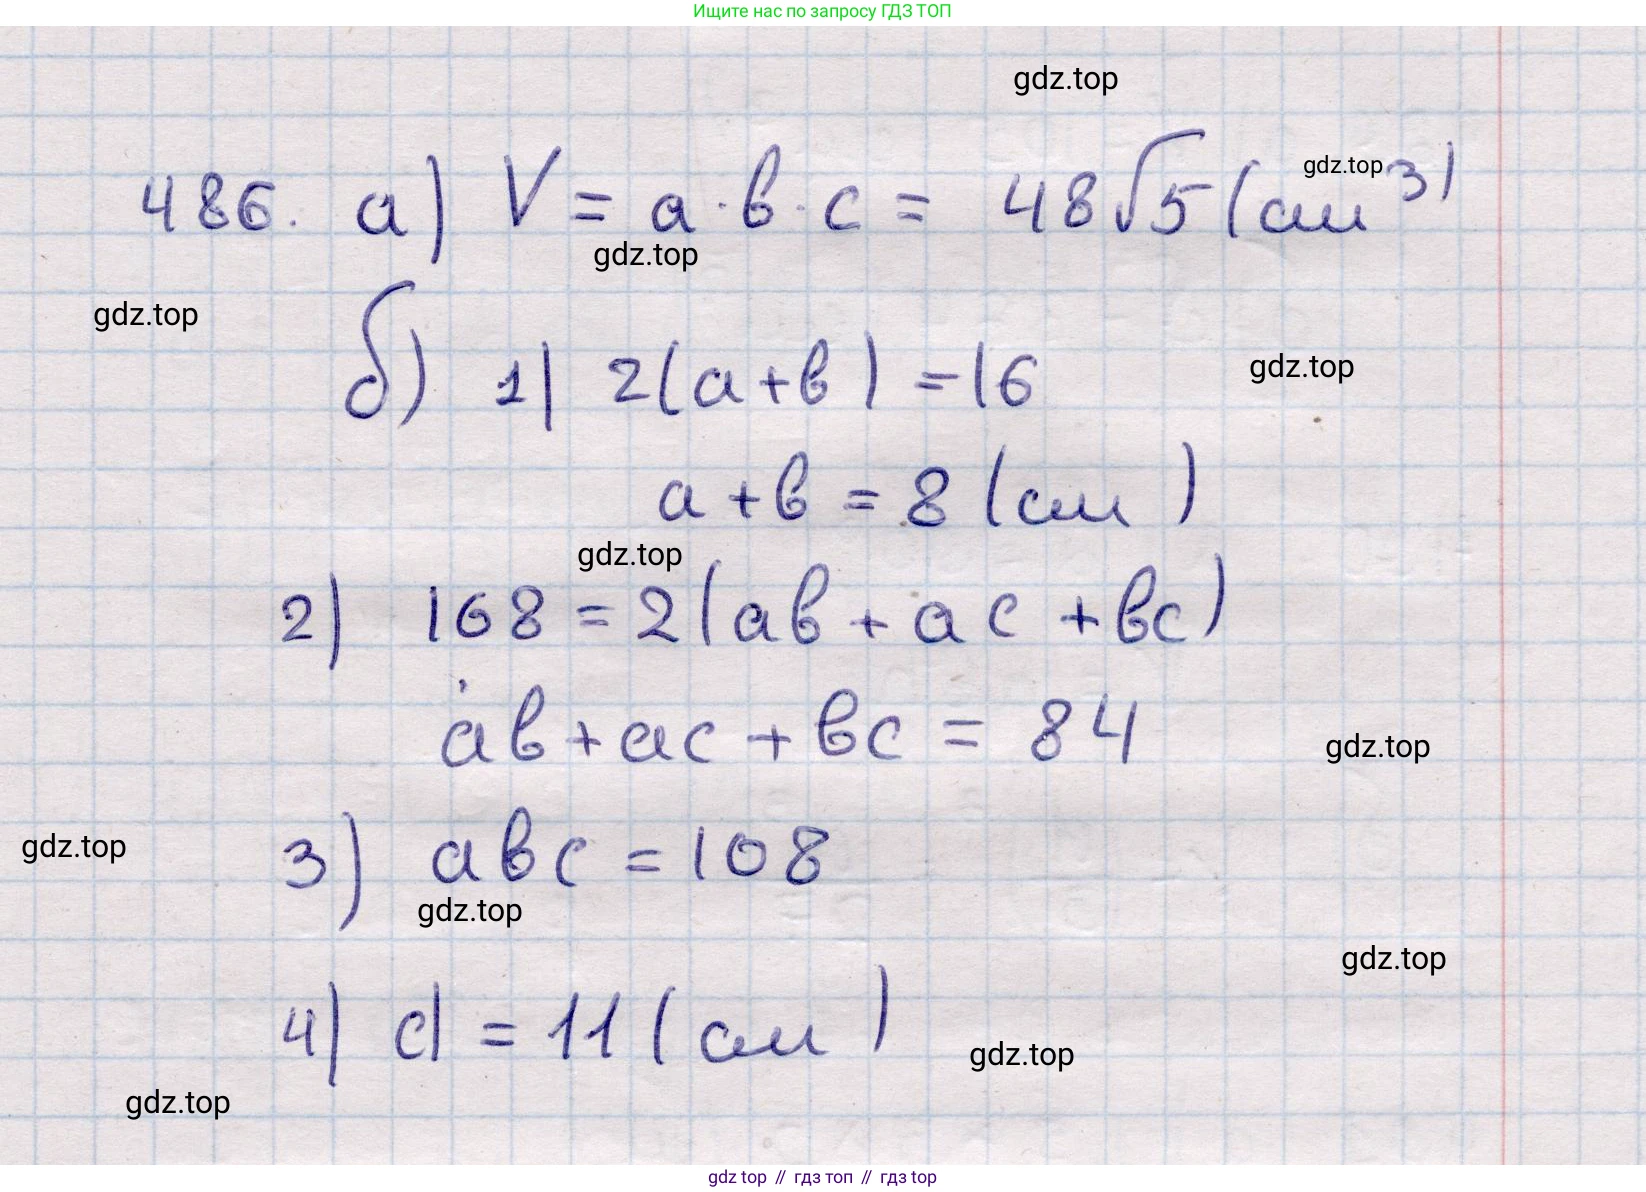 Ищите нас по запросу ГДЗ ТОП
gdz.top
486. а) V = a · b · c = 48√5 (см³)
gdz.top
gdz.top
gdz.top
б) 1) 2(a+b) = 16
gdz.top
a + b = 8 (см)
gdz.top
2) 168 = 2(ab + ac + bc)
ab + ac + bc = 84
gdz.top
3) abc = 108
gdz.top
gdz.top
gdz.top
4) d = 11 (см)
gdz.top
gdz.top
gdz top // гдз топ // гдз top